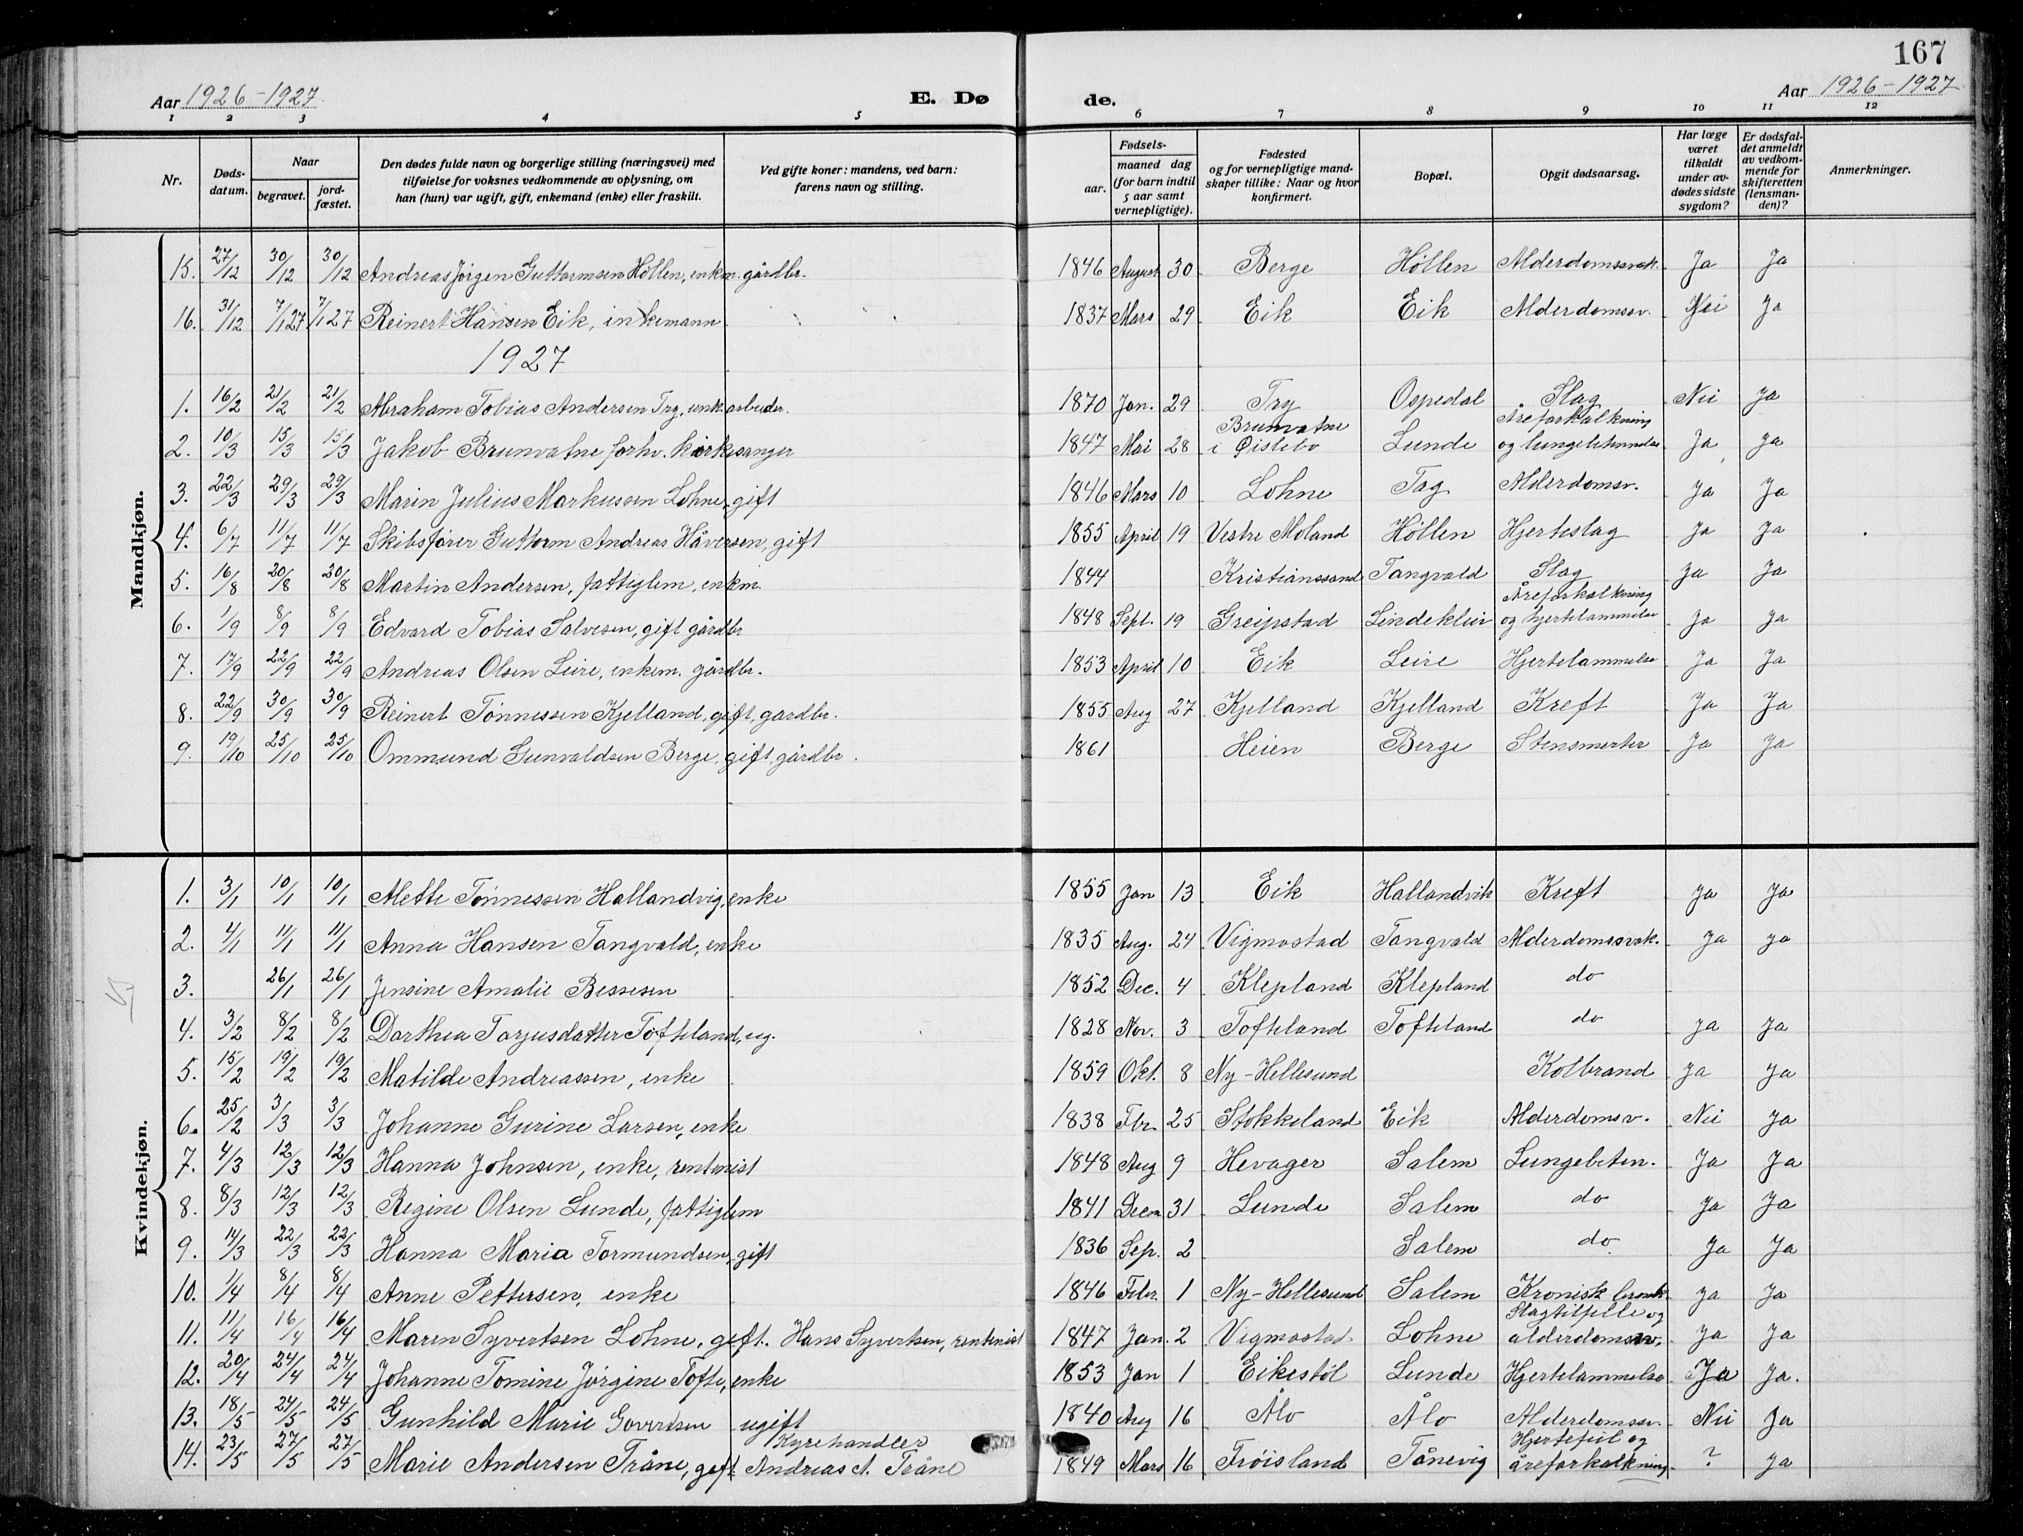 167
Aar 1926-1927 E. Dø de. Aar 1926-1927
1 2 3 4 5 6 7 8 9 10 11 12
Nr. Døds-datum. Naar begravet. jord-fæstet. Den dødes fulde navn og borgerlige stilling (næringsvei) med tilføielse for voksnes vedkommende av oplysning, om han (hun) var ugift, gift, enkemand (enke) eller fraskilt. Ved gifte koner: mandens, ved barn: farens navn og stilling. Fødsels- aar. maaned dag (for barn indtil 5 aar samt vernepligtige). Fødested og for vernepligtige mandskaper tillike: Naar og hvor konfirmert. Bopæl. Opgit dødsaarsag. Har læge været tilkaldt under avdødes sidste sygdom? Er dødsfaldet anmeldt av vedkommende for skifteretten (lensmanden)? Anmerkninger.
Mandkjøn.
15. 27/12 30/12 30/12 Andreas Jørgen Guttormsen Høllen, enkm. gårdbr. 1846 August 30 Berge Høllen Alderdomssvak. Ja Ja
16. 31/12 7/1 27 7/1 27 Reinert Hansen Eik, enkemann 1837 Mars 29 Eik Eik Alderdomsv. Nei Ja
1927
1. 16/2 21/2 21/2 Abraham Tobias Andersen Try, enk. arbeider. 1870 Jan. 29 Try Ospedal Slag Nei Ja
2. 10/3 15/3 15/3 Jakob Brunvatne forhv. kirkesanger 1847 Mai 28 Brunvatne i Øislebø Lunde Åreforkalkning og lungebetennelse Ja Ja
3. 22/3 29/3 29/3 Marin Julius Markussen Lohne, gift 1846 Mars 10 Lohne Tag Alderdomsv. Ja Ja
4. 6/7 11/7 11/7 Skibsfører Guttorm Andreas Håversen, gift 1855 April 19 Vestre Moland Høllen Hjerteslag Ja Ja
5. 16/8 20/8 20/8 Martin Andersen, fattiglem, enkm. 1844 Kristianssand Tangvald Slag Ja Ja
6. 1/9 8/9 8/9 Edvard Tobias Salvesen, gift gårdbr 1848 Sept. 19 Greipstad Lindekleiv Åreforkalkning og hjertelammelse Ja Ja
7. 17/9 22/9 22/9 Andreas Olsen Leire, enkem. gårdbr. 1853 April 10 Eik Leire Hjertelammelse Ja Ja
8. 22/9 30/9 30/9 Reinert Tönnessen Kjelland, gift, gardbr. 1855 Aug 27 Kjelland Kjelland Kreft Ja Ja
9. 19/10 25/10 25/10 Ommund Gunvaldsen Berge, gift, gårdbr. 1861 Heien Berge Stensmerter Ja Ja
Kvindekjøn.
1. 3/1 10/1 10/1 Mette Tönnessen Hallandvig, enke 1855 Jan 13 Eik Hallandvik Kreft Ja Ja
2. 4/1 11/1 11/1 Anna Hansen Tangvald, enke 1835 Aug. 24 Vigmostad Tangvald Alderdomssvak. Ja Ja
3. 26/1 26/1 Jensine Amalie Bessesen 1852 Dec. 4 Klepland Klepland do
4. 3/2 8/2 8/2 Dorthea Torjusdatter Tofteland, ug. 1828 Nov. 3 Tofteland Tofteland do Ja Ja
5. 15/2 19/2 19/2 Matilde Andreassen, enke 1859 Okt. 8 Ny-Hellesund Kolbrand Ja Ja
6. 25/2 3/3 3/3 Johanne Gurine Larsen, enke 1838 Fbr. 25 Stokkeland Eik Alderdomsv. Nei Ja
7. 4/3 12/3 12/3 Hanna Johnsen, enke, rentenist 1848 Aug 9 Hevager Salem Lungebeten. Ja Ja
8. 8/3 12/3 12/3 Regine Olsen Lunde, fattiglem 1841 Decm 31 Lunde Salem do Ja Ja
9. 14/3 22/3 22/3 Hanna Maria Tormundsen, gift 1836 Sep. 2 Salem do Ja Ja
10. 1/4 8/4 8/4 Anne Pettersen, enke 1846 Febr. 1 Ny-Hellesund Salem Kronisk bronk. Ja Ja
11. 11/4 16/4 16/4 Maren Syvertsen Lohne, gift. Hans Syvertsen, rentenist 1847 Jan. 2 Vigmostad Lohne Slagtilfelle og alderdomsv. Ja Ja
12. 20/4 24/4 24/4 Johanne Tomine Jörgine Tofte, enke 1853 Jan 1 Eikestöl Lunde Hjertelammelse Ja Ja.
13. 18/5 24/5 24/5 Gunhild Marie Govertsen ugift 1840 Aug 16 Ålo Ålo Alderdomssv. Nei Ja
14. 23/5 27/5 27/5 Marie Andersen Tråne, gift Kyrehandler Andreas A. Tråne 1849 Mars 16 Fröisland Tånevig Hjertefeil og åreforkalkning ? Ja